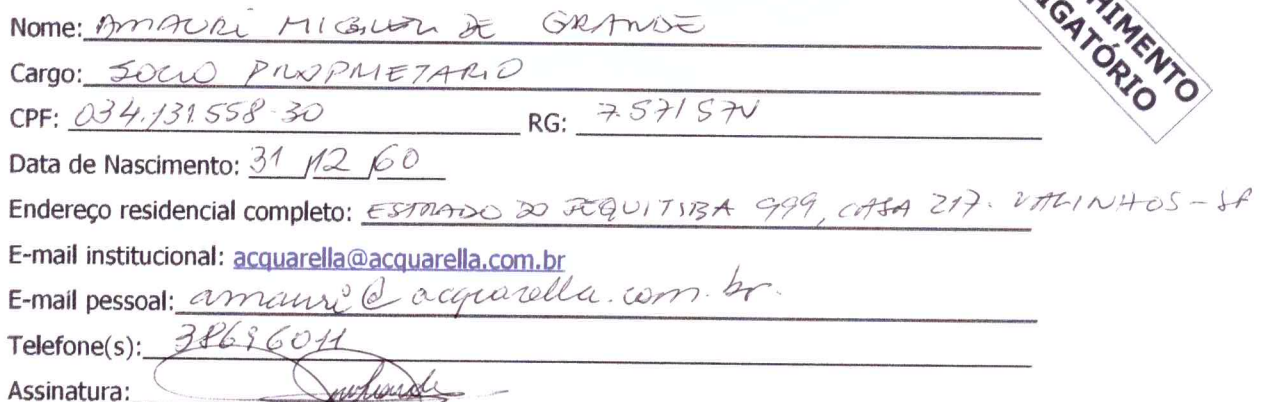 HIMENTO
IGATÓRIO
Nome: AMAURI MIGUEL DE GRANDE
Cargo: SOCIO PROPRIETARIO
CPF: 034.131.558-30 RG: 7.571570
Data de Nascimento: 31/12/60
Endereço residencial completo: ESTRADA DO JEQUITIBA 999, CASA 217. VALINHOS-SP
E-mail institucional: acquarella@acquarella.com.br
E-mail pessoal: amauri@acquarella.com.br.
Telefone(s): 38696011
Assinatura: